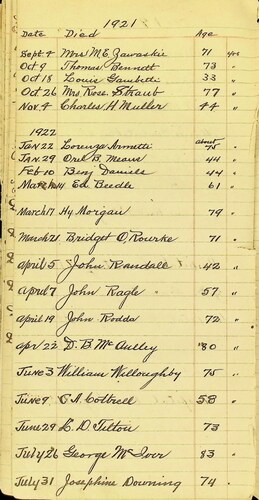 1921
Date Died Age
Sept. 4 Mrs M.E. Zawaskie 71 yrs
Oct 9 Thomas Bennett 73 "
Oct 18 Louis Gambetti 33 "
Oct 26 Mrs Rose Straub 77 "
Nov. 4 Charles H Muller 44 "
1922
Jan 22 Lorenza Armetti about 75 "
Jan. 29 Orel B. Means 44 "
Feb 10 Benj Daniels 44 "
March 14 Ed. Beedle 61 "
March 17 Hy Morgan 79 "
March 21 Bridget O'Rourke 71 "
April 5 John Randall 42 "
April 7 John Ragle 57 "
April 19 John Rodda 72 "
Apr 22 D. B. McAulley 80 "
June 3 William Willoughby 75 "
June 9 A. Cottrell 58 "
June 29 E. D. Tilton 73 "
July 26 George McIver 83 "
July 31 Josephine Downing 74 "